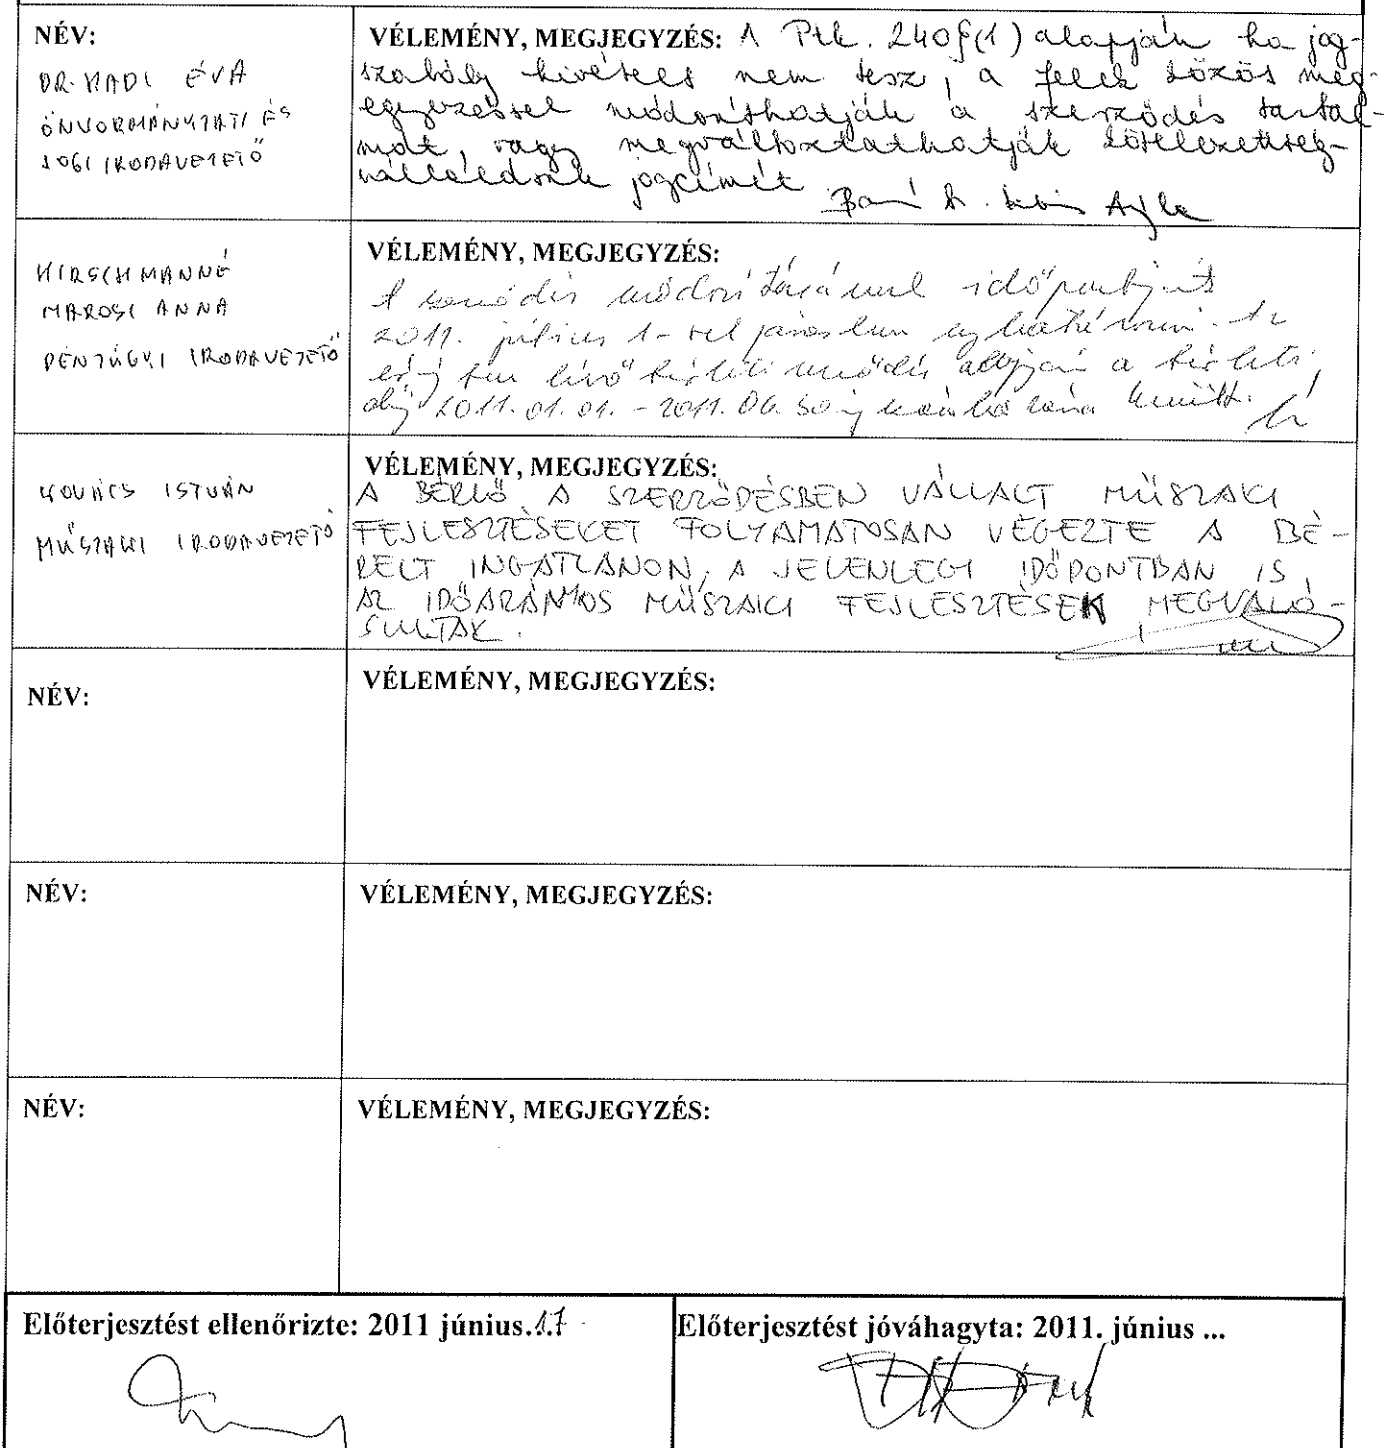 NÉV:
DR. KADI ÉVA
ÖNKORMÁNYZATI ÉS
JOGI IRODAVEZETŐ
VÉLEMÉNY, MEGJEGYZÉS: A Ptk. 240§(1) alapján ha jog-
szabály kivételt nem tesz, a felek közös meg-
egyezéssel módosíthatják a szerződés tartal-
mát, vagy megváltoztathatják kötelezettség-
vállalásuk jogcímét.
HIRSCHMANNÉ
MAROSI ANNA
PÉNZÜGYI IRODAVEZETŐ
VÉLEMÉNY, MEGJEGYZÉS:
A szerződés módosításának időpontját
2011. július 1-vel
bérleti szerződés alapján a bérleti
díj 2011.01.01. - 2011.06.30-ig
KOVÁCS ISTVÁN
MŰSZAKI IRODAVEZETŐ
VÉLEMÉNY, MEGJEGYZÉS:
A BÉRLŐ A SZERZŐDÉSBEN VÁLLALT MŰSZAKI
FEJLESZTÉSEKET FOLYAMATOSAN VÉGEZTE A BÉ-
RELT INGATLANON, A JELENLEGI IDŐPONTBAN IS,
AZ IDŐARÁNYOS MŰSZAKI FEJLESZTÉSEK MEGVALÓ-
SULTAK.
NÉV:
VÉLEMÉNY, MEGJEGYZÉS:
NÉV:
VÉLEMÉNY, MEGJEGYZÉS:
NÉV:
VÉLEMÉNY, MEGJEGYZÉS:
Előterjesztést ellenőrizte: 2011 június.17
Előterjesztést jóváhagyta: 2011. június ...